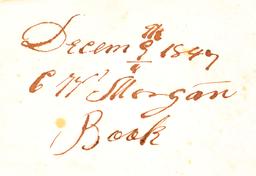 Decem 9th 1847
C W Morgan
Book